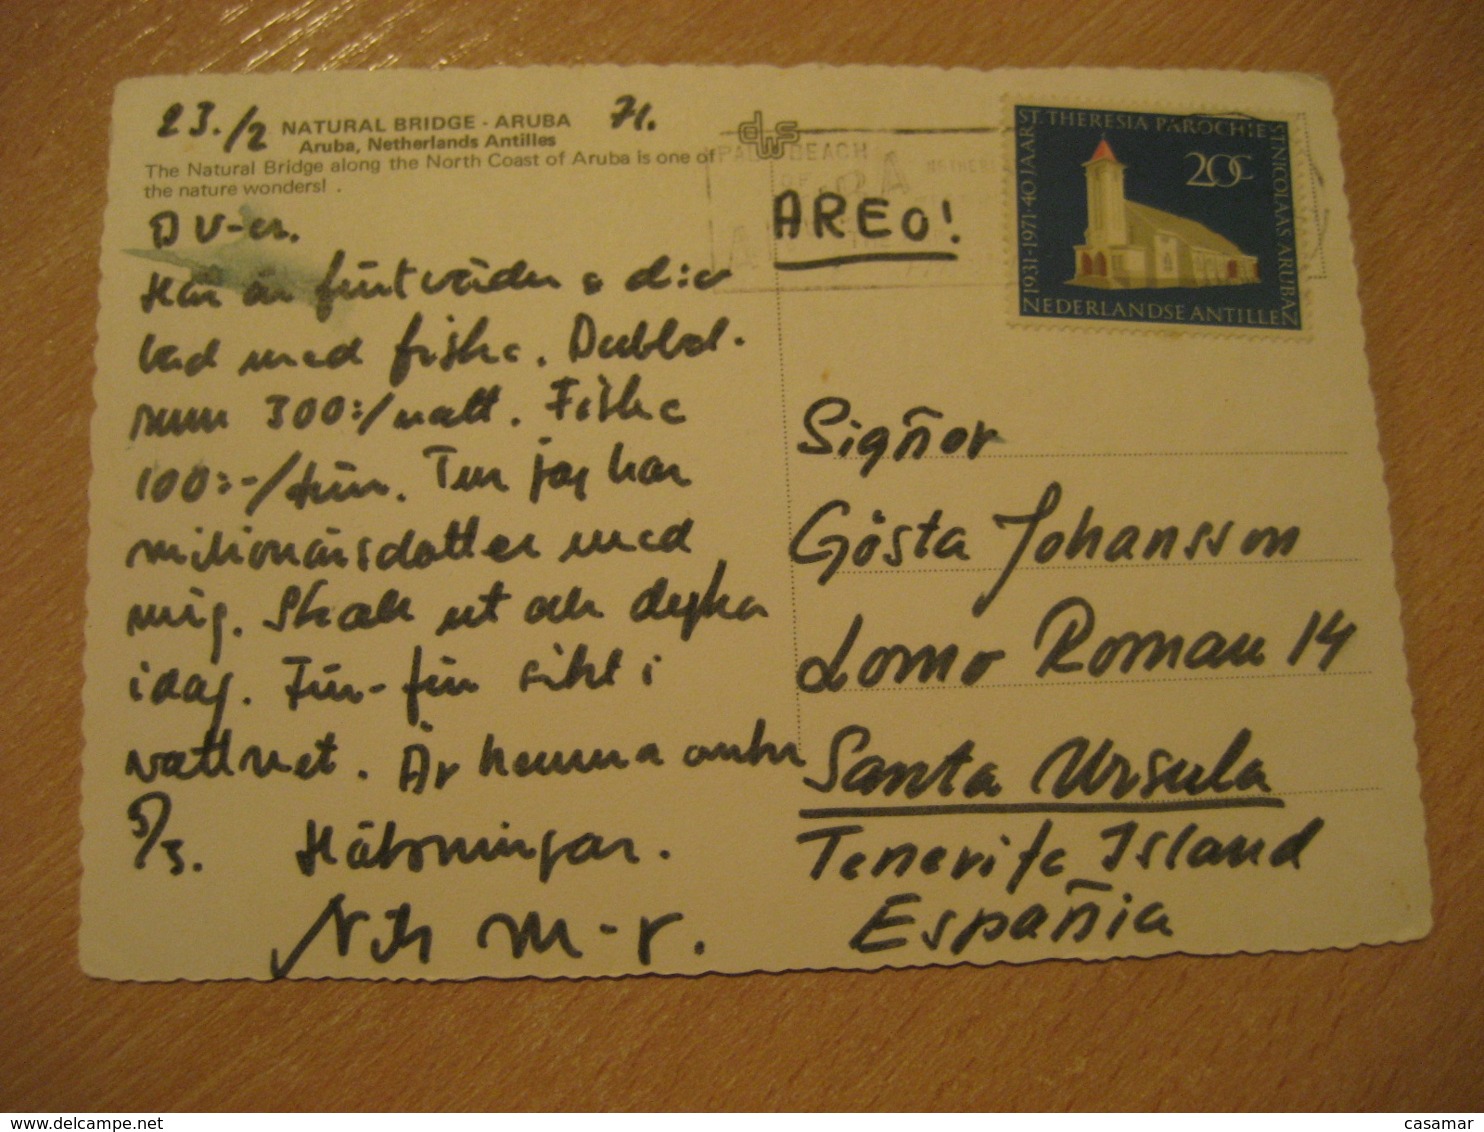 23./2 NATURAL BRIDGE - ARUBA 71.
Aruba, Netherlands Antilles
The Natural Bridge along the North Coast of Aruba is one of
the nature wonders! .
Här är fint väder o
bad med fiske. Dubbel-
rum 300:-/natt. Fiske
100:-/tim. Tur jag har
milionärsdotter med
mig. Skall ut och dyka
idag. Fin-fin sikt i
vattnet. Är hemma omkr
5/3. Hälsningar.
dws
PALM BEACH
ARUBA
AREO!
ST. THERESIA PAROCHIE
ST. NICOLAAS ARUBA
1931-1971-40 JAAR
20c
NEDERLANDSE ANTILLEN
Sigñor
Gösta Johansson
Lomo Roman 14
Santa Ursula
Tenerife Island
Españia
casamar